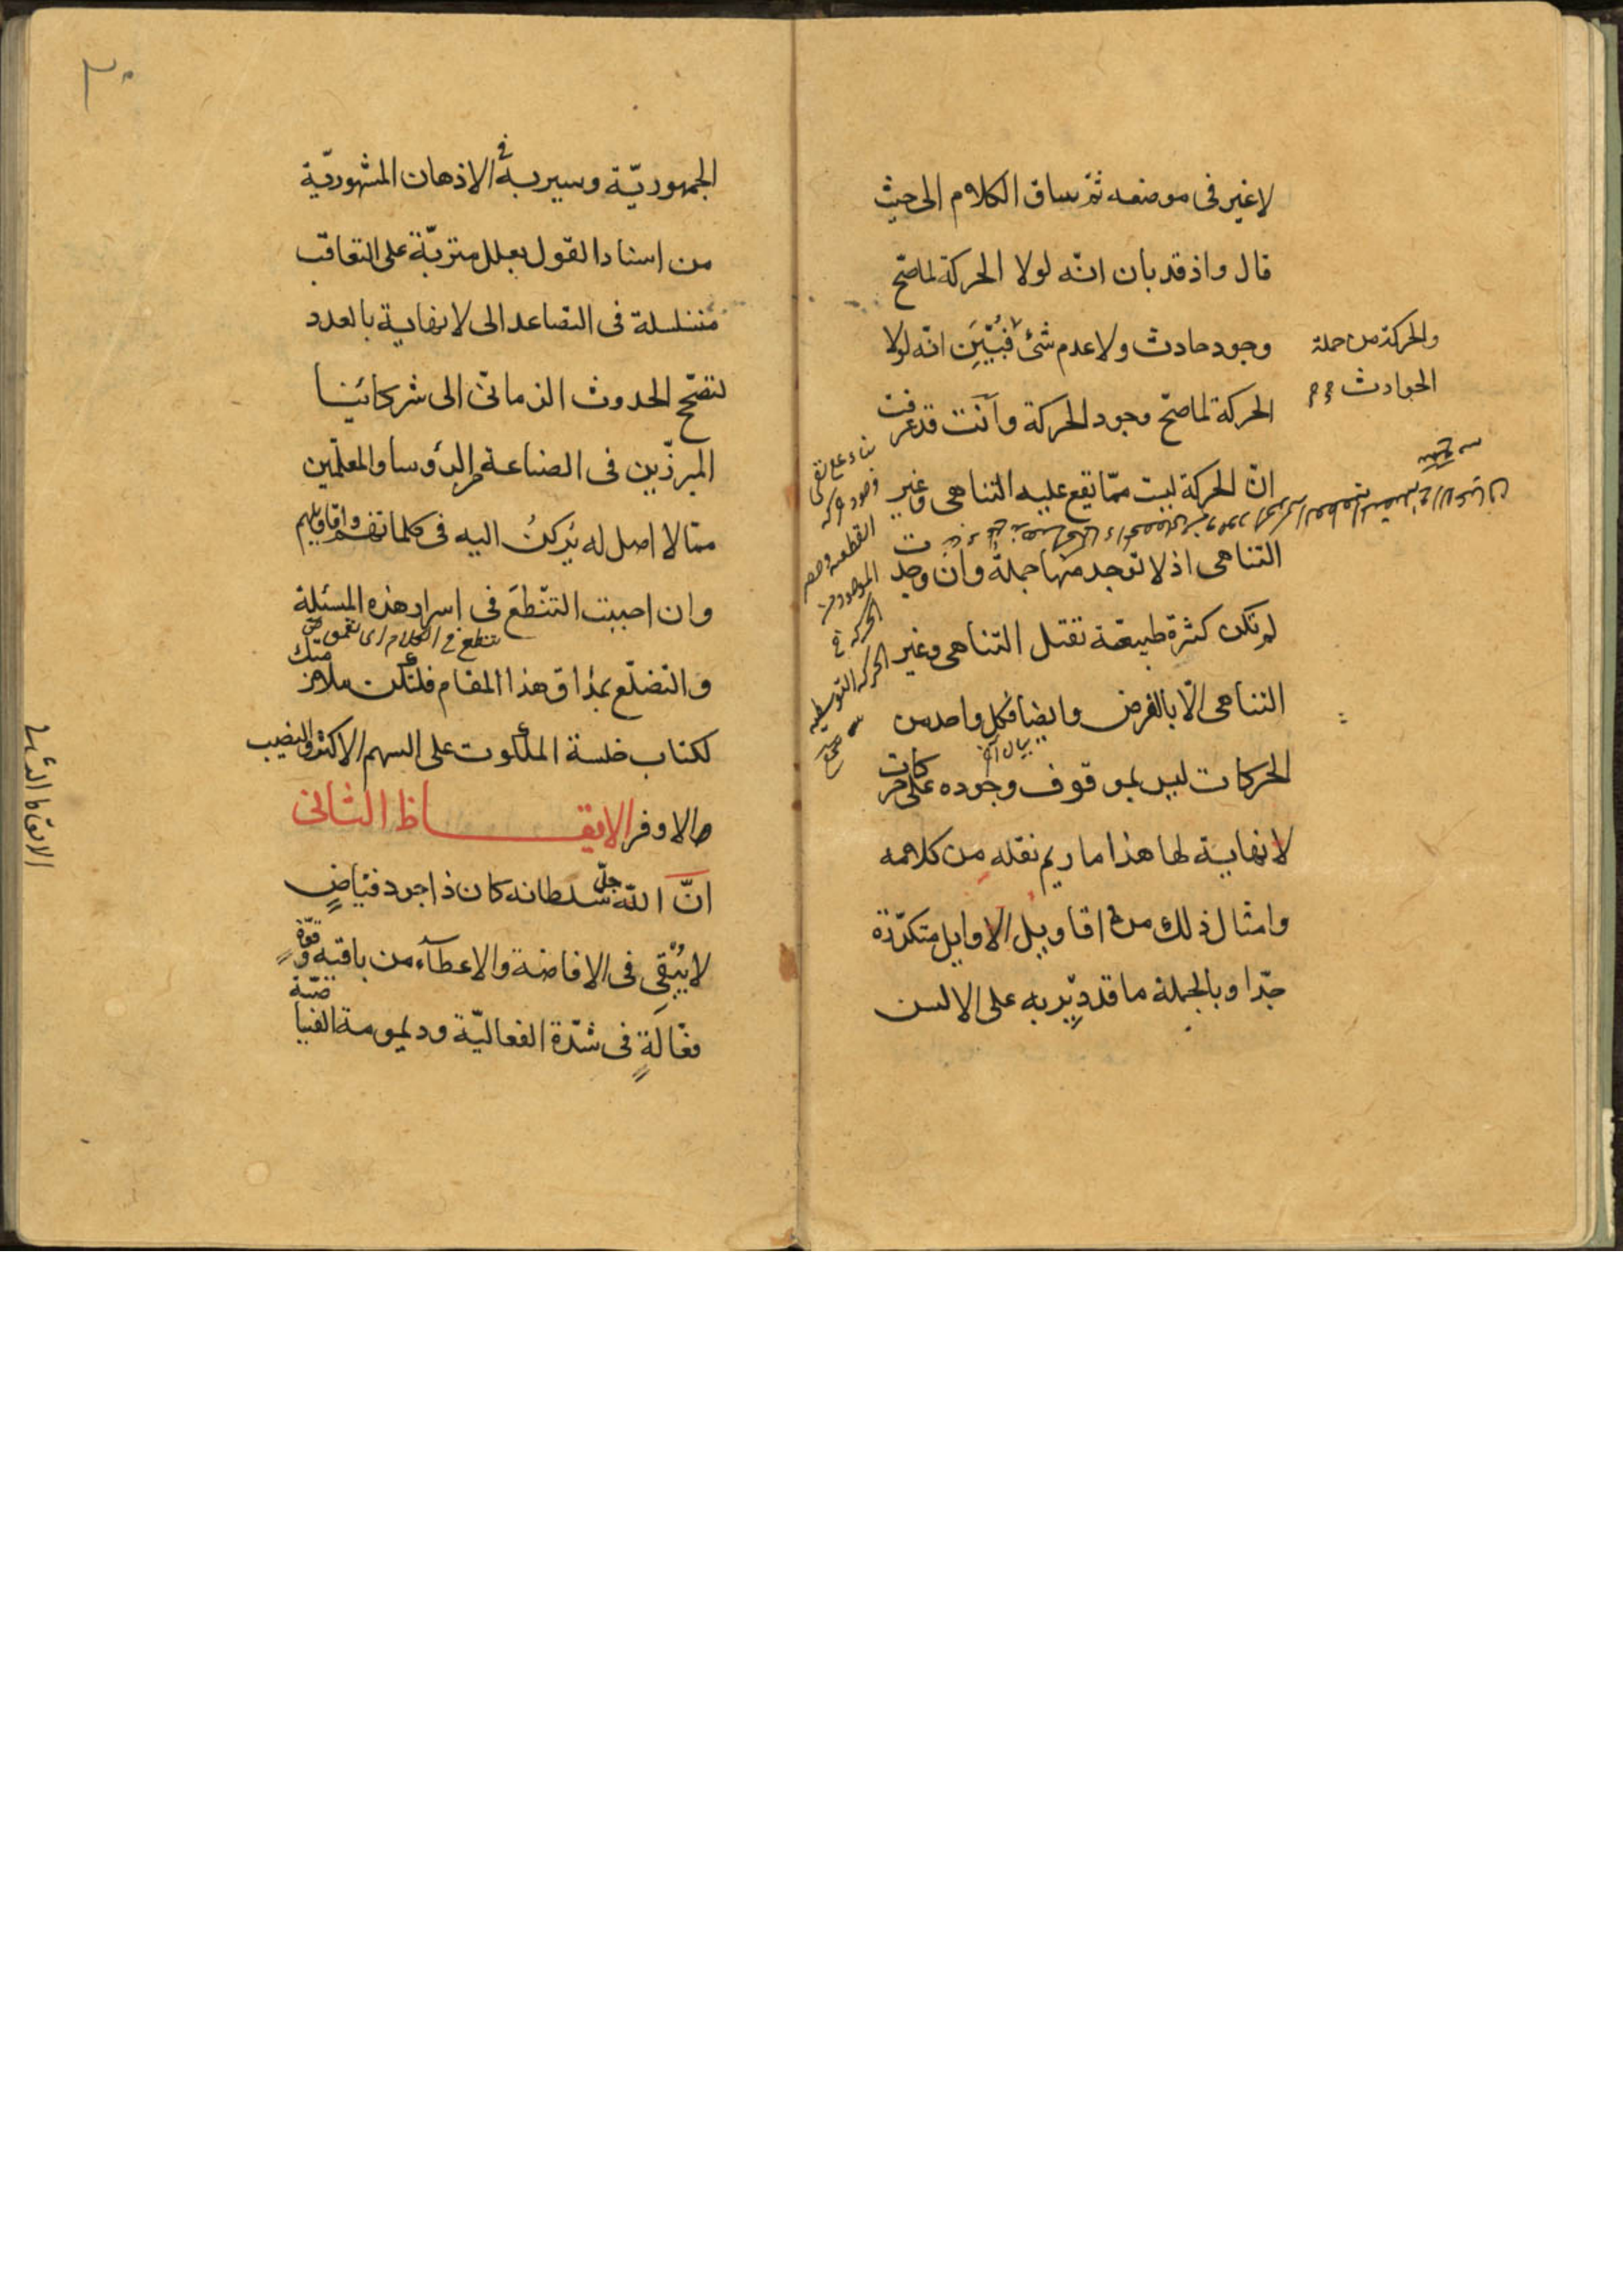 لا غير فى موضعه ثمّ ساق الكلام الى حيث
قال واذ قد بان انّه لولا الحركة لما صحّ
وجود حادث ولا عدم شئ فبُيّنَ انّه لولا
والحركة من جملة
الحوادث
الحركة لما صحّ وجود الحركة وانت قد عرفت
انّ الحركة ليست ممّا يقع عليه التناهى وغير
التناهى اذ لا توجد منها جملة وان وجدت
لم تكن كثرة طبيعة تقبل التناهى وغير
التناهى الّا بالفرض وايضا فكل واحد من
بيان آخر
الحركات ليس بموقوف وجوده على حركات
لا نهاية لها هذا ما ريم نقله من كلامه
وامثال ذلك من اقاويل الاوايل متكرّرة
جدّا وبالجملة ما قد يُدبّر به على الالسن
القطعية
الموجود من
الحركة فى
الحركة التوسطية
٣٠
الجمهوريّة وسير به فى الاذهان المشهوريّة
من اسناد القول بعلل مترتبة على التعاقب
متسلسلة فى التصاعد الى لا نهاية بالعدد
لتصحّح الحدوث الزمانى الى شركائنا
المبرزّين فى الصناعة من الرؤسا والمعلّمين
ممّا لا اصل له يُركنُ اليه فى كلماتهم واقاويلهم
وان احببت التنّطعَ فى اسرار هذه المسئلة
تنطع فى الكلام اى تعمق
والتضلّع بمذاق هذا المقام فلتكن ملازمتك
لكتاب خلسة الملكوت على السهم الاكثر والنصيب
الاوفر الايقـــاظ الثانى
انّ الله جلّ سلطانه كان ذا جود فيّاضٍ
لا يُبْقِى فى الافاضة والاعطاء من باقية وقوّة
فعّالةٍ فى شدّة الفعاليّة وديمومة الفيا
ضيّة